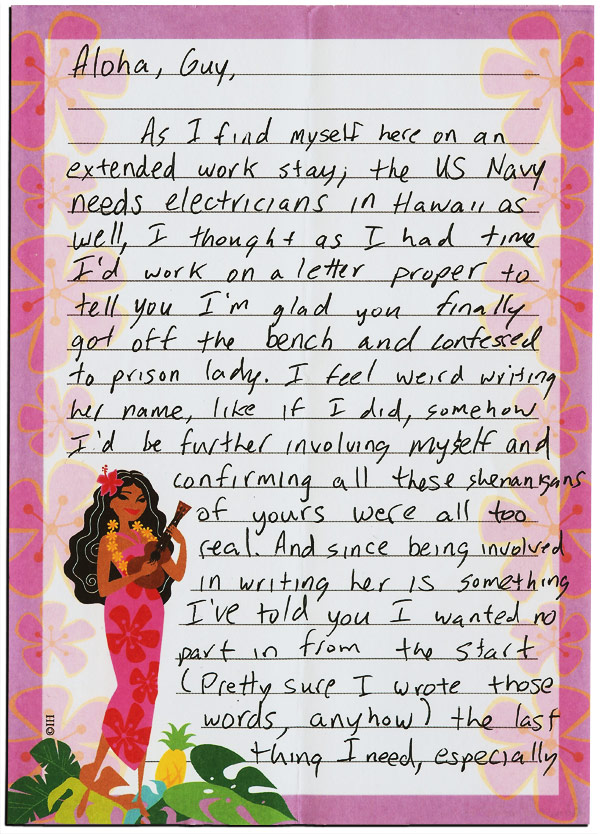 Aloha, Guy,
As I find myself here on an
extended work stay; the US Navy
needs electricians in Hawaii as
well, I thought as I had time
I'd work on a letter proper to
tell you I'm glad you finally
got off the bench and confessed
to prison lady. I feel weird writing
her name, like if I did, somehow
I'd be further involving myself and
confirming all these shenanigans
of yours were all too
real. And since being involved
in writing her is something
I've told you I wanted no
part in from the start
(Pretty sure I wrote those
words, anyhow) the last
thing I need, especially
©IH